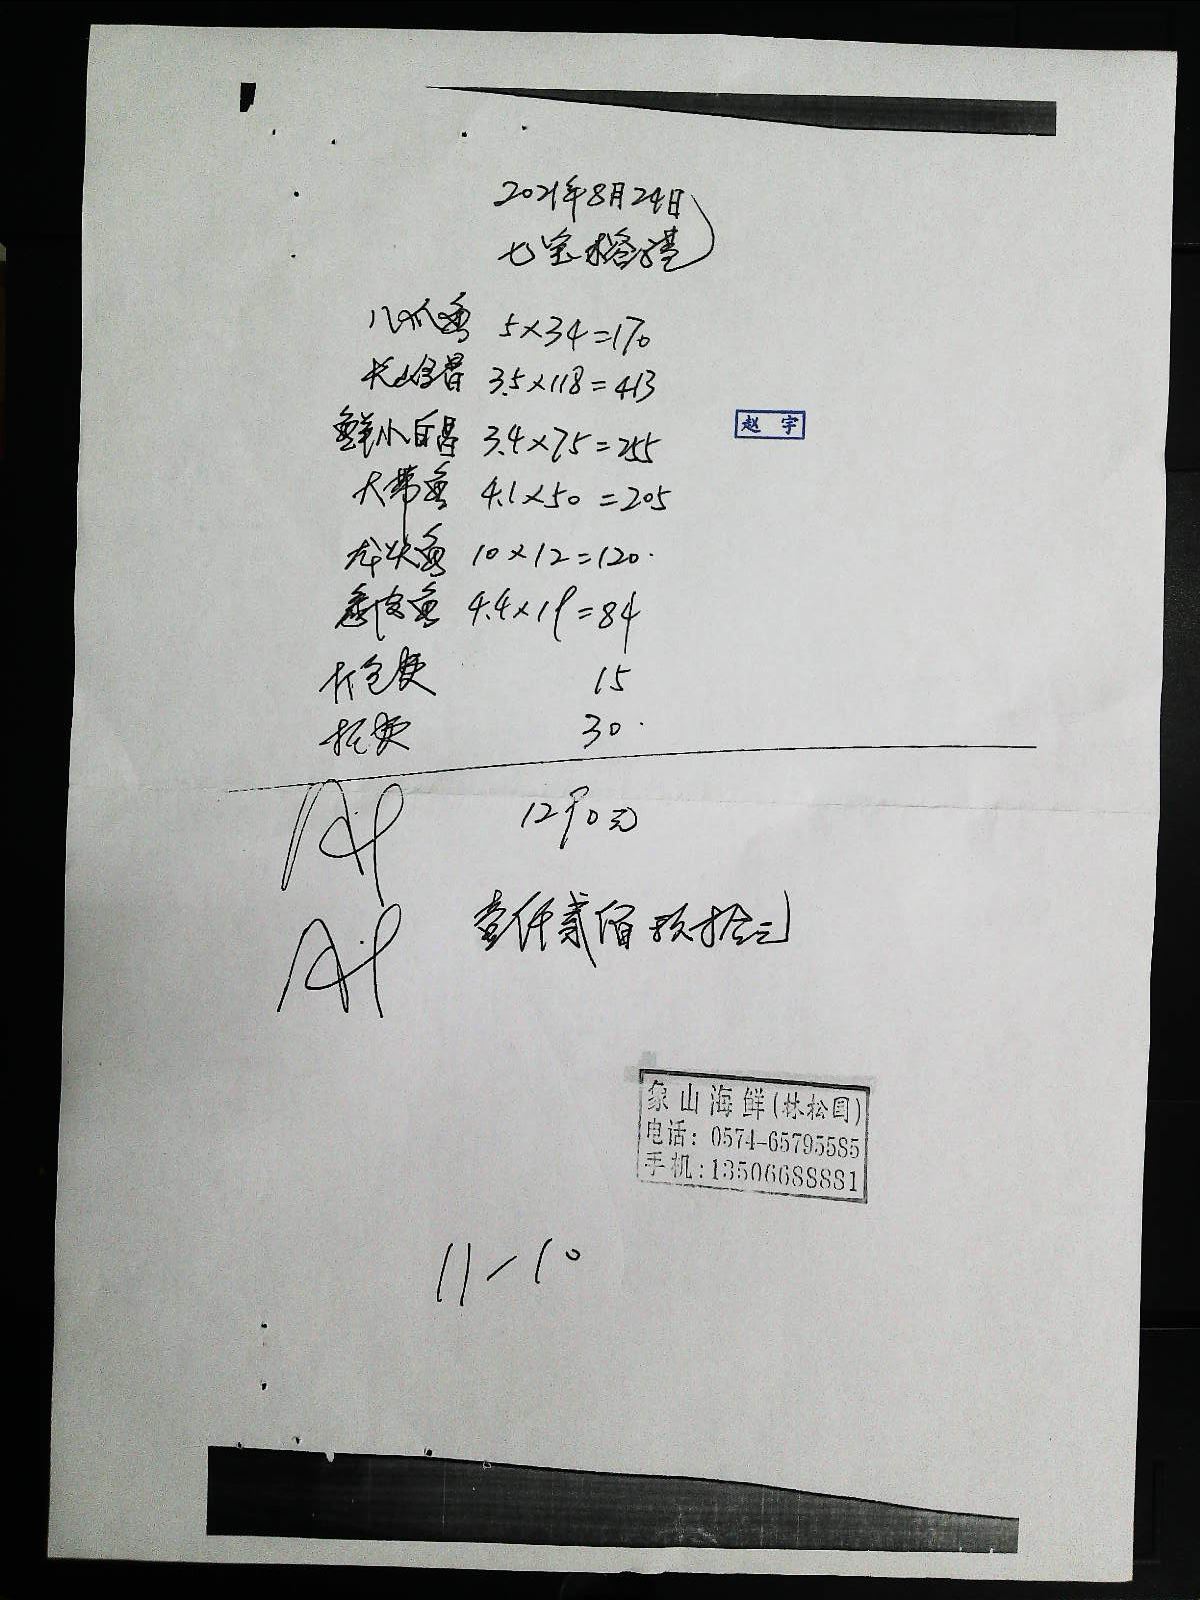 2021年8月24日
七宝榕港
八爪鱼 5×34=170
长山仓昌 3.5×118=413
鲜小白昌 3.4×75=255
赵 宇
大带鱼 4.1×50=205
龙头鱼 10×12=120.
鱼 4.4×19=84
打包费 15
托费 30.
1290元
壹仟贰佰玖拾元
象山海鲜(林松国)
电话: 0574-65795585
手机:13506688881
11-10